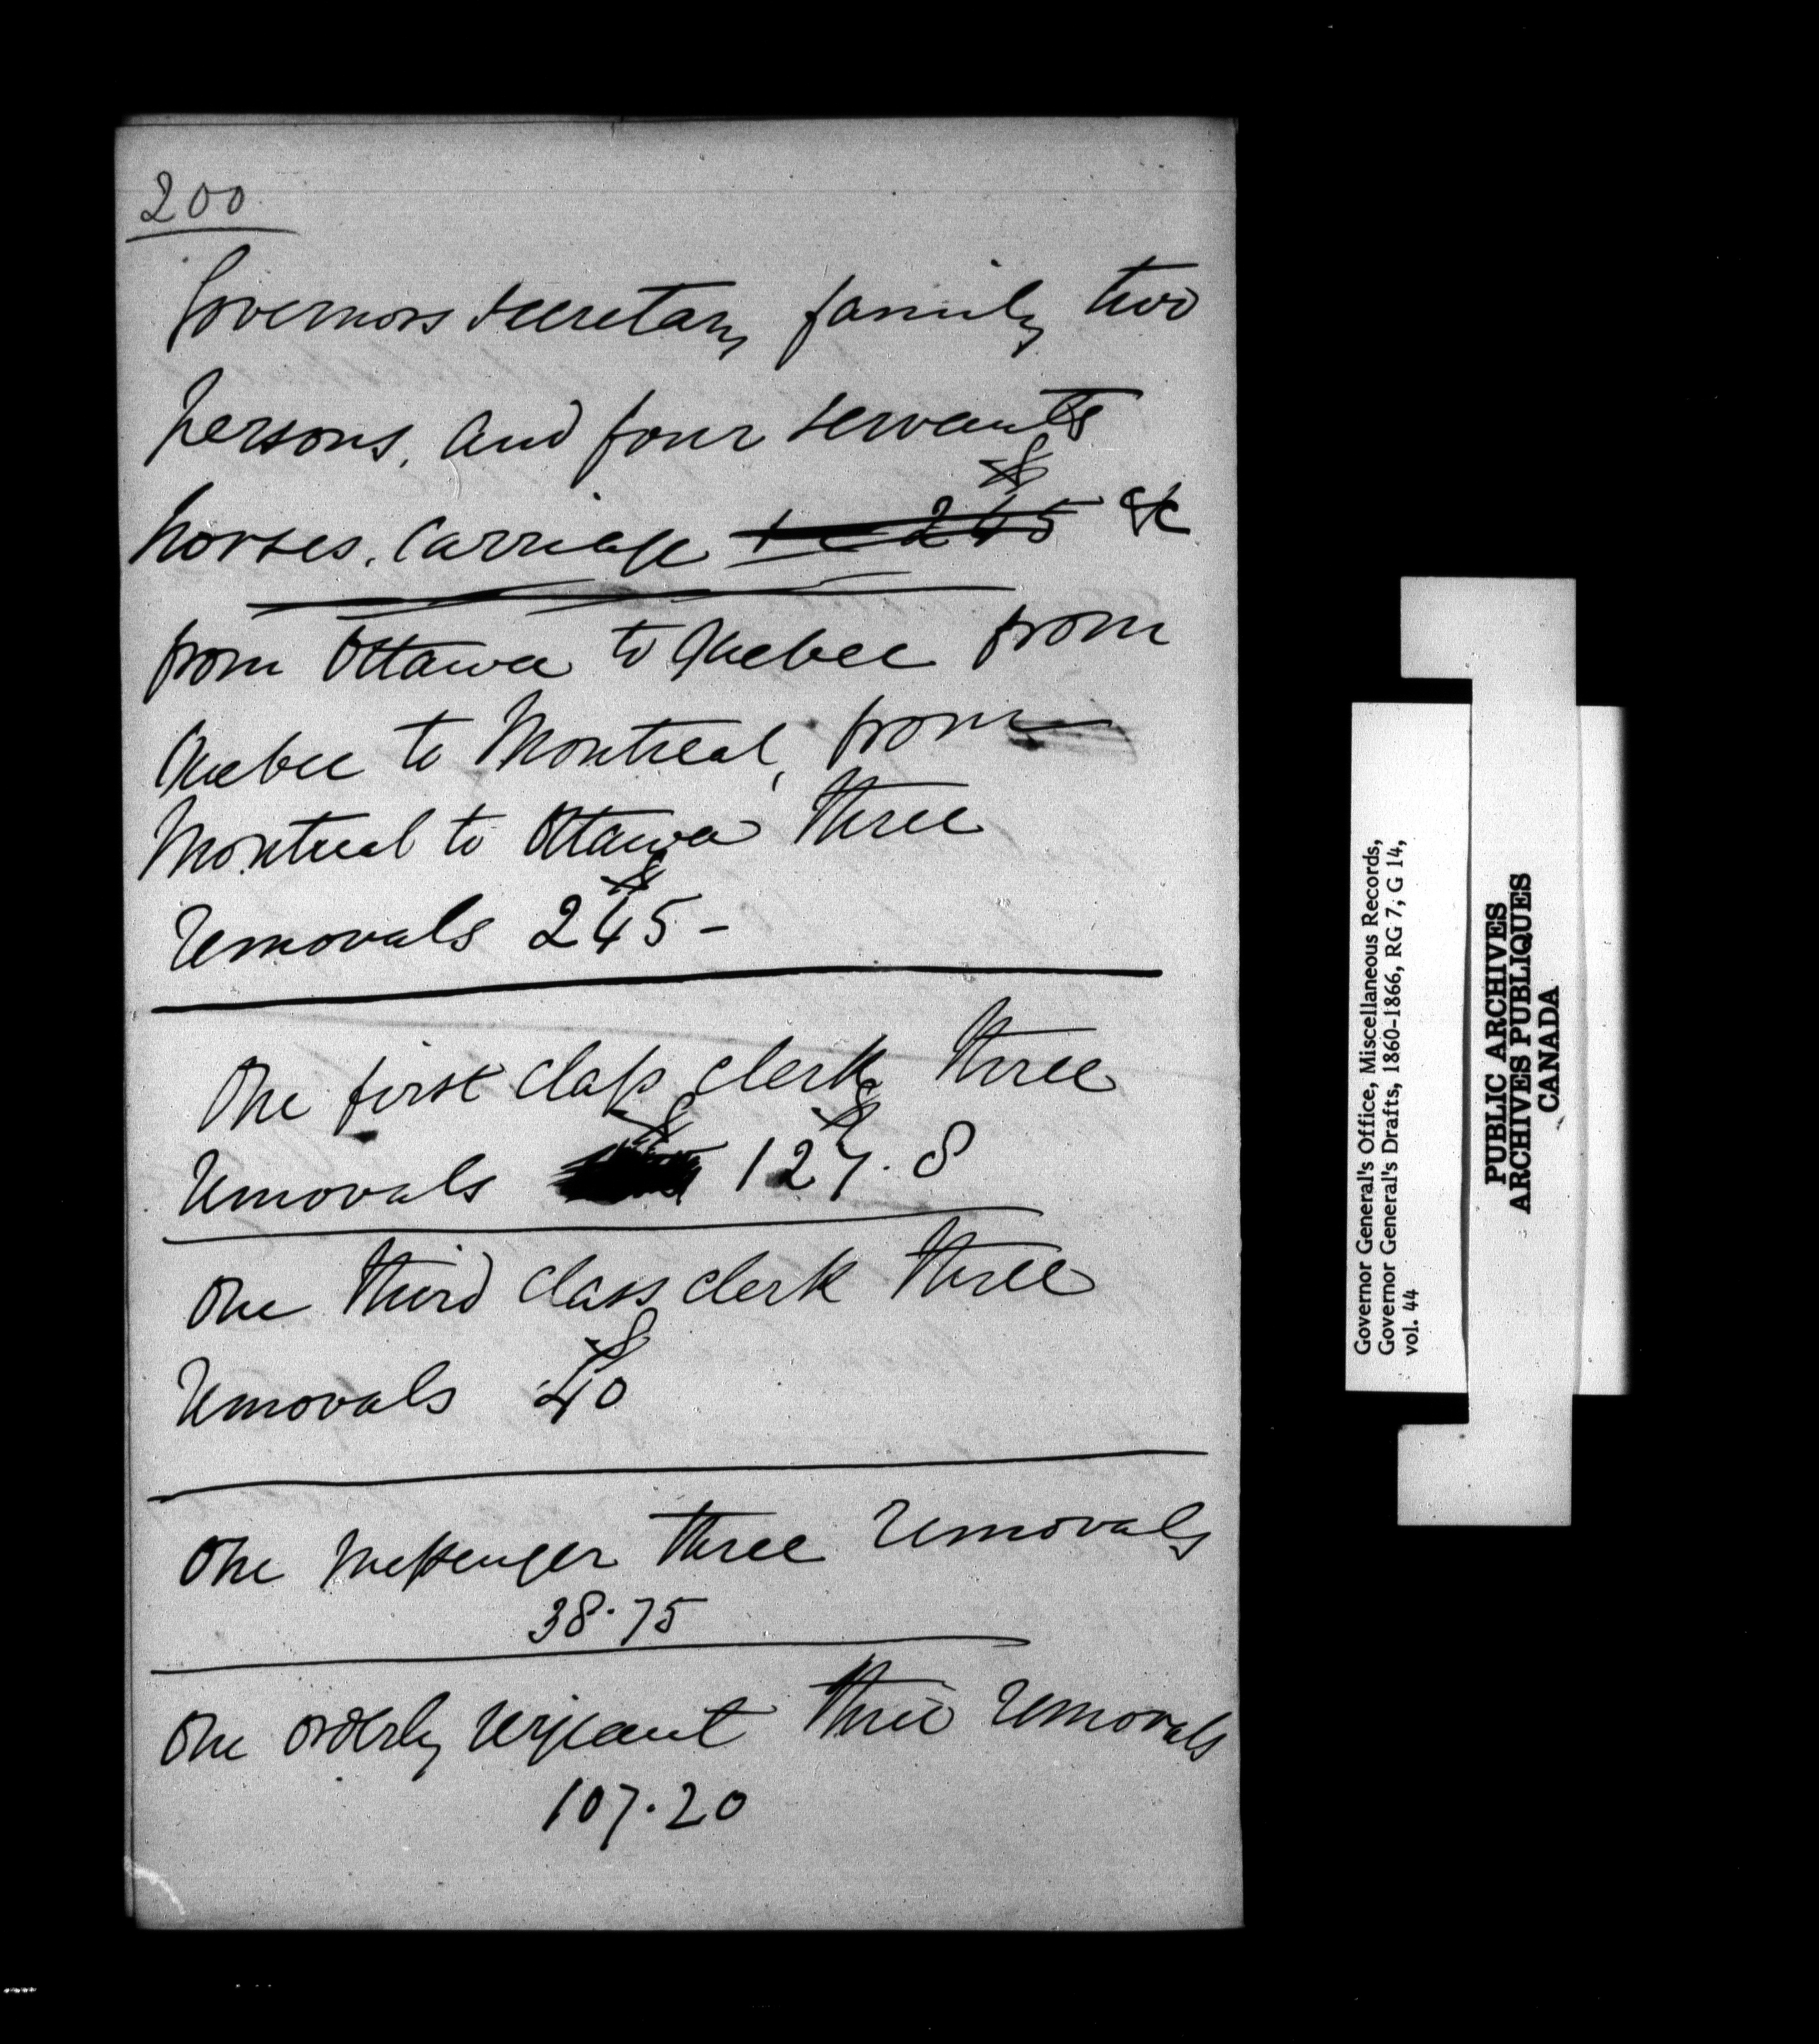 200
Governors secretary family two
persons, and four servants
£
horses, carriage &c 245 &c
from Ottawa to Quebec from
Quebec to Montreal, from
Montreal to Ottawa three
£
removals 245 -
One first class clerk three
£ £
removals 127. 8
One third class clerk three
£
removals 40
One Messenger three removals
38.75
One orderly serjeant three removals
107.20
Governor General's Office, Miscellaneous Records,
Governor General's Drafts, 1860-1866, RG 7, G 14,
vol. 44
PUBLIC ARCHIVES
ARCHIVES PUBLIQUES
CANADA